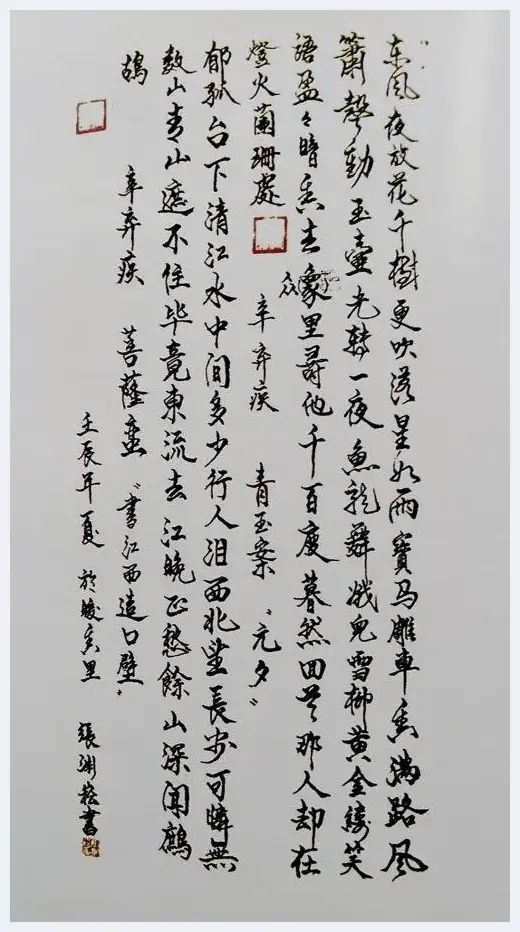 东风夜放花千樹更吹落星如雨寶马雕車香满路风
簫聲動玉壺光转一夜魚龍舞蛾兒雪柳黄金縷笑
語盈々暗香去像里尋他千百度暮然回首那人却在
众
燈火蘭珊處 辛弃疾 青玉案 "元夕"
郁孤台下清江水中间多少行人泪西北望長安可憐無
数山青山遮不住毕竟東流去江晚正愁餘山深闻鷓
鸪 辛弃疾 菩薩蛮 "書江西造口壁"
壬辰年夏 於 香里 張渊 書